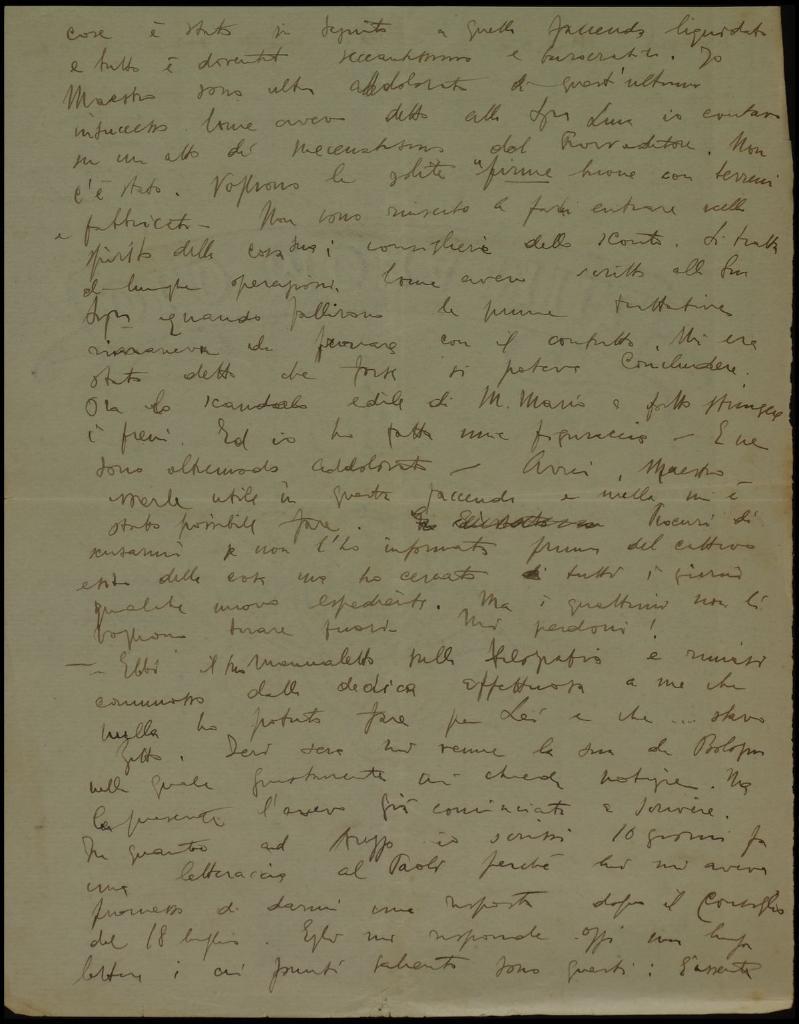 cose è stato in seguito a quella faccenda liquidato
e tutto è diventato seccantissimo e burocratico. Io
Maestro sono oltremodo addolorato di quest'ultimo
insuccesso. Come avevo detto alla Luna io contavo
su un atto di mecenatismo del Provveditore. Non
c'è stato. Vogliono le solite "firme buone con terreni
e fabbricati - Non sono riuscito a farli entrare nello
spirito della cosa i consiglieri dello sconto. Si tratta
di lunghe operazioni. Come avevo scritto alla Sua
quando fallirono le prime trattative
rimaneva da provare con il contratto. Mi era
stato detto che forse si poteva concludere.
Ora lo scandalo edile di M. Mario a fatto stringere
i freni. Ed io ho fatto una figuraccia - E ne
sono oltremodo addolorato - Avrei, Maestro
esserle utile in questa faccenda e nulla mi è
stato possibile fare. Procuri di
scusarmi se non l'ho informato prima del cattivo
esito delle cose ma ho cercato tutti i giorni
qualche nuovo espediente. Ma i quattrini non li
vogliono tirare fuori. Mi perdoni!
- Ebbi il suo Manualetto sulla e rimasi
commosso dalla dedica affettuosa a me che
nulla ho potuto fare per Lei e che ... stavo
zitto. Ieri sera mi venne la sua da Bologna
nella quale giustamente mi chiede notizie. Ma
la presente l'avevo già cominciata a scrivere.
In quanto ad io scrissi 10 giorni fa
una letteraccia al Paoli perché lui mi aveva
promesso di darmi una risposta dopo il Consiglio
del 18 luglio. Egli mi risponde oggi una lunga
lettera i cui punti salienti sono questi: L'assente